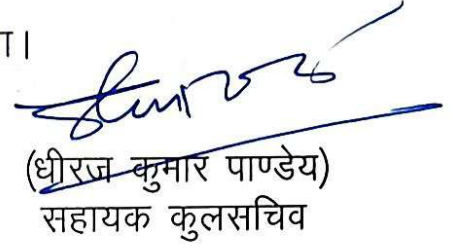 (धीरज कुमार पाण्डेय)
सहायक कुलसचिव